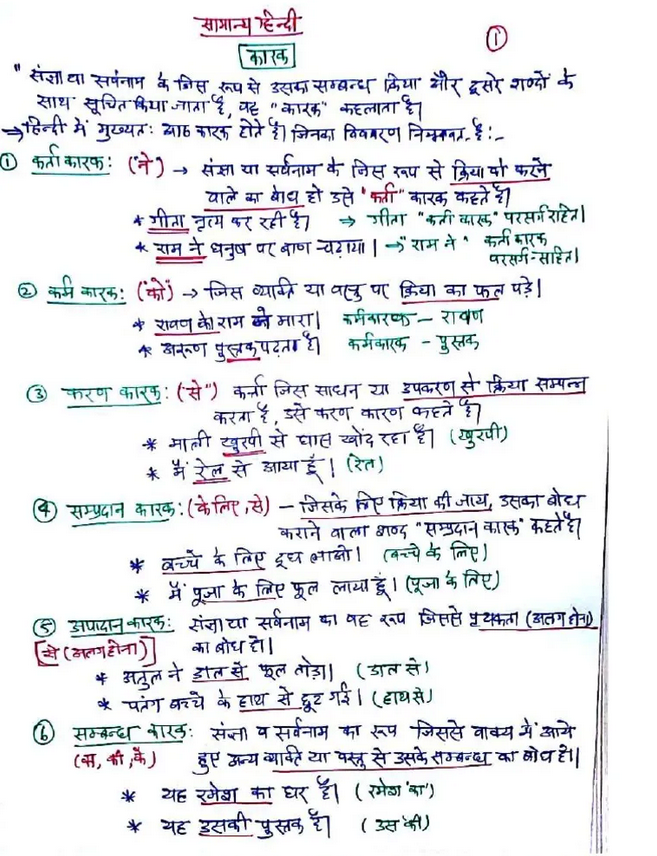 सामान्य हिन्दी
①
कारक
" संज्ञा या सर्वनाम के जिस रूप से उसका सम्बन्ध क्रिया और दूसरे शब्दों के
साथ सूचित किया जाता है, वह "कारक" कहलाता है।
→ हिन्दी में मुख्यतः आठ कारक होते है। जिनका विवरण निम्नवत् है:-
① कर्ता कारक: (ने) → संज्ञा या सर्वनाम के जिस रूप से क्रिया को करने
वाले का बोध हो उसे "कर्ता" कारक कहते है।
* गीता नृत्य कर रही है। ⇒ गीता "कर्ता कारक" परसर्ग रहित।
* राम ने धनुष पर बाण चढ़ाया। → "राम ने" कर्ता कारक
परसर्ग-सहित।
② कर्म कारक: (को) → जिस व्यक्ति या वस्तु पर क्रिया का फल पड़े।
* रावण को राम ने मारा। कर्मकारक – रावण
* अरूण पुस्तक पढ़ता है। कर्मकारक - पुस्तक
③ करण कारक: (से") कर्ता जिस साधन या उपकरण से क्रिया सम्पन्न
करता है, उसे करण कारण कहते है।
* माली खुरपी से घास खोद रहा है। (खुरपी)
* मैं रेल से आया हूँ। (रेल)
④ सम्प्रदान कारक: (के लिए, से) – जिसके लिए क्रिया की जाय, उसका बोध
कराने वाला शब्द "सम्प्रदान कारक" कहते है।
* बच्चे के लिए दूध लाओ। (बच्चे के लिए)
* मैं पूजा के लिए फूल लाया हूं। (पूजा के लिए)
⑤ अपादान कारक: संज्ञा या सर्वनाम का वह रूप जिससे पृथकता (अलग होना)
[से (अलग होना)] का बोध हो।
* अतुल ने डाल से फूल तोड़ा। (डाल से)
* पतंग बच्चे के हाथ से छूट गई। (हाथ से)
⑥ सम्बन्ध कारक: संज्ञा व सर्वनाम का रूप जिससे वाक्य में आये
(का, की, के) हुए अन्य व्यक्ति या वस्तु से उसके सम्बन्ध का बोध हो।
* यह रमेश का घर है। (रमेश 'का')
* यह उसकी पुस्तक है। (उस 'की)